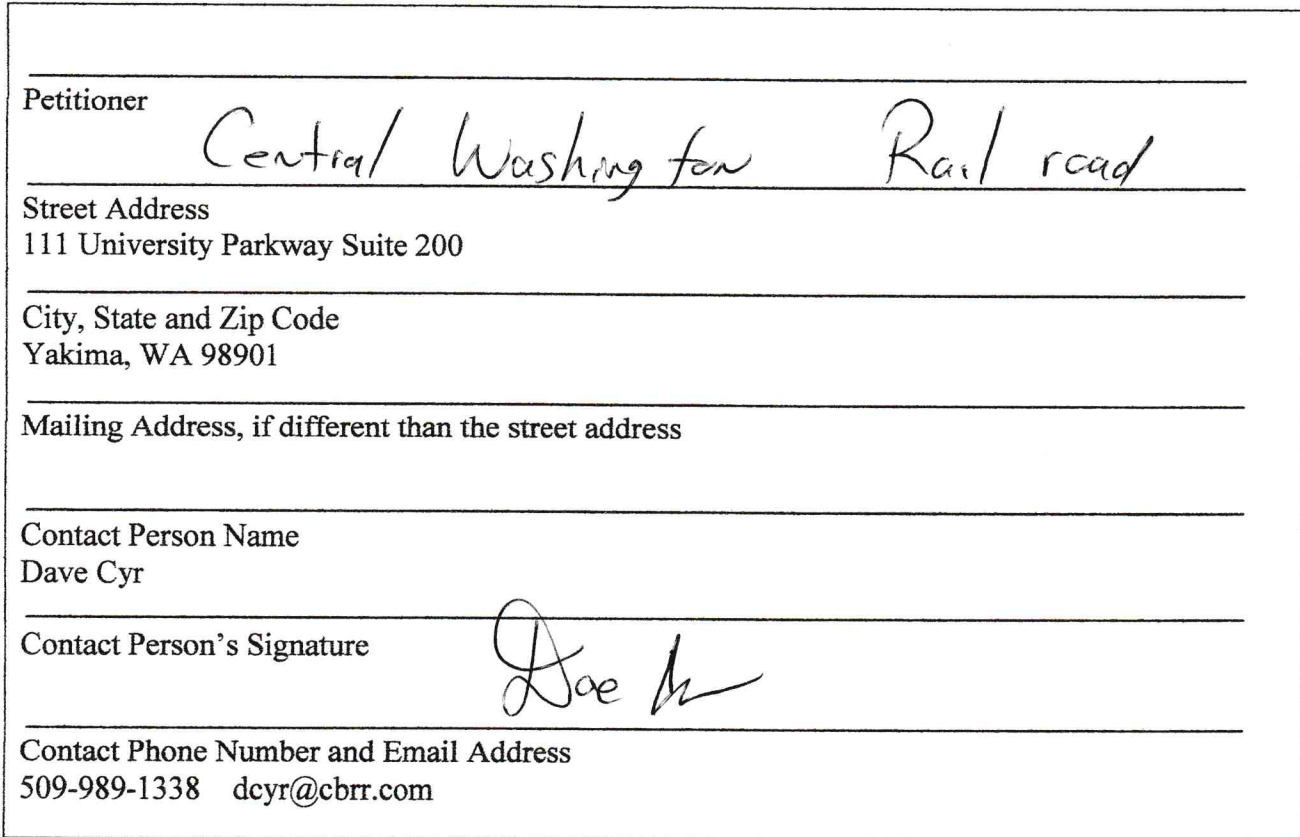 Petitioner
Central Washington Rail road
Street Address
111 University Parkway Suite 200
City, State and Zip Code
Yakima, WA 98901
Mailing Address, if different than the street address
Contact Person Name
Dave Cyr
Contact Person's Signature
Contact Phone Number and Email Address
509-989-1338 dcyr@cbrr.com